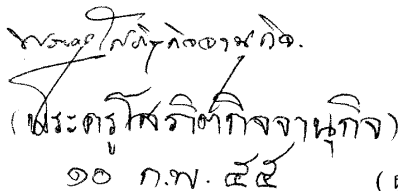 พระครูโสภิตกิจจานุกิจ.
(พระครูโสภิตกิจจานุกิจ)
๑๐ ก.พ. ๕๕ (